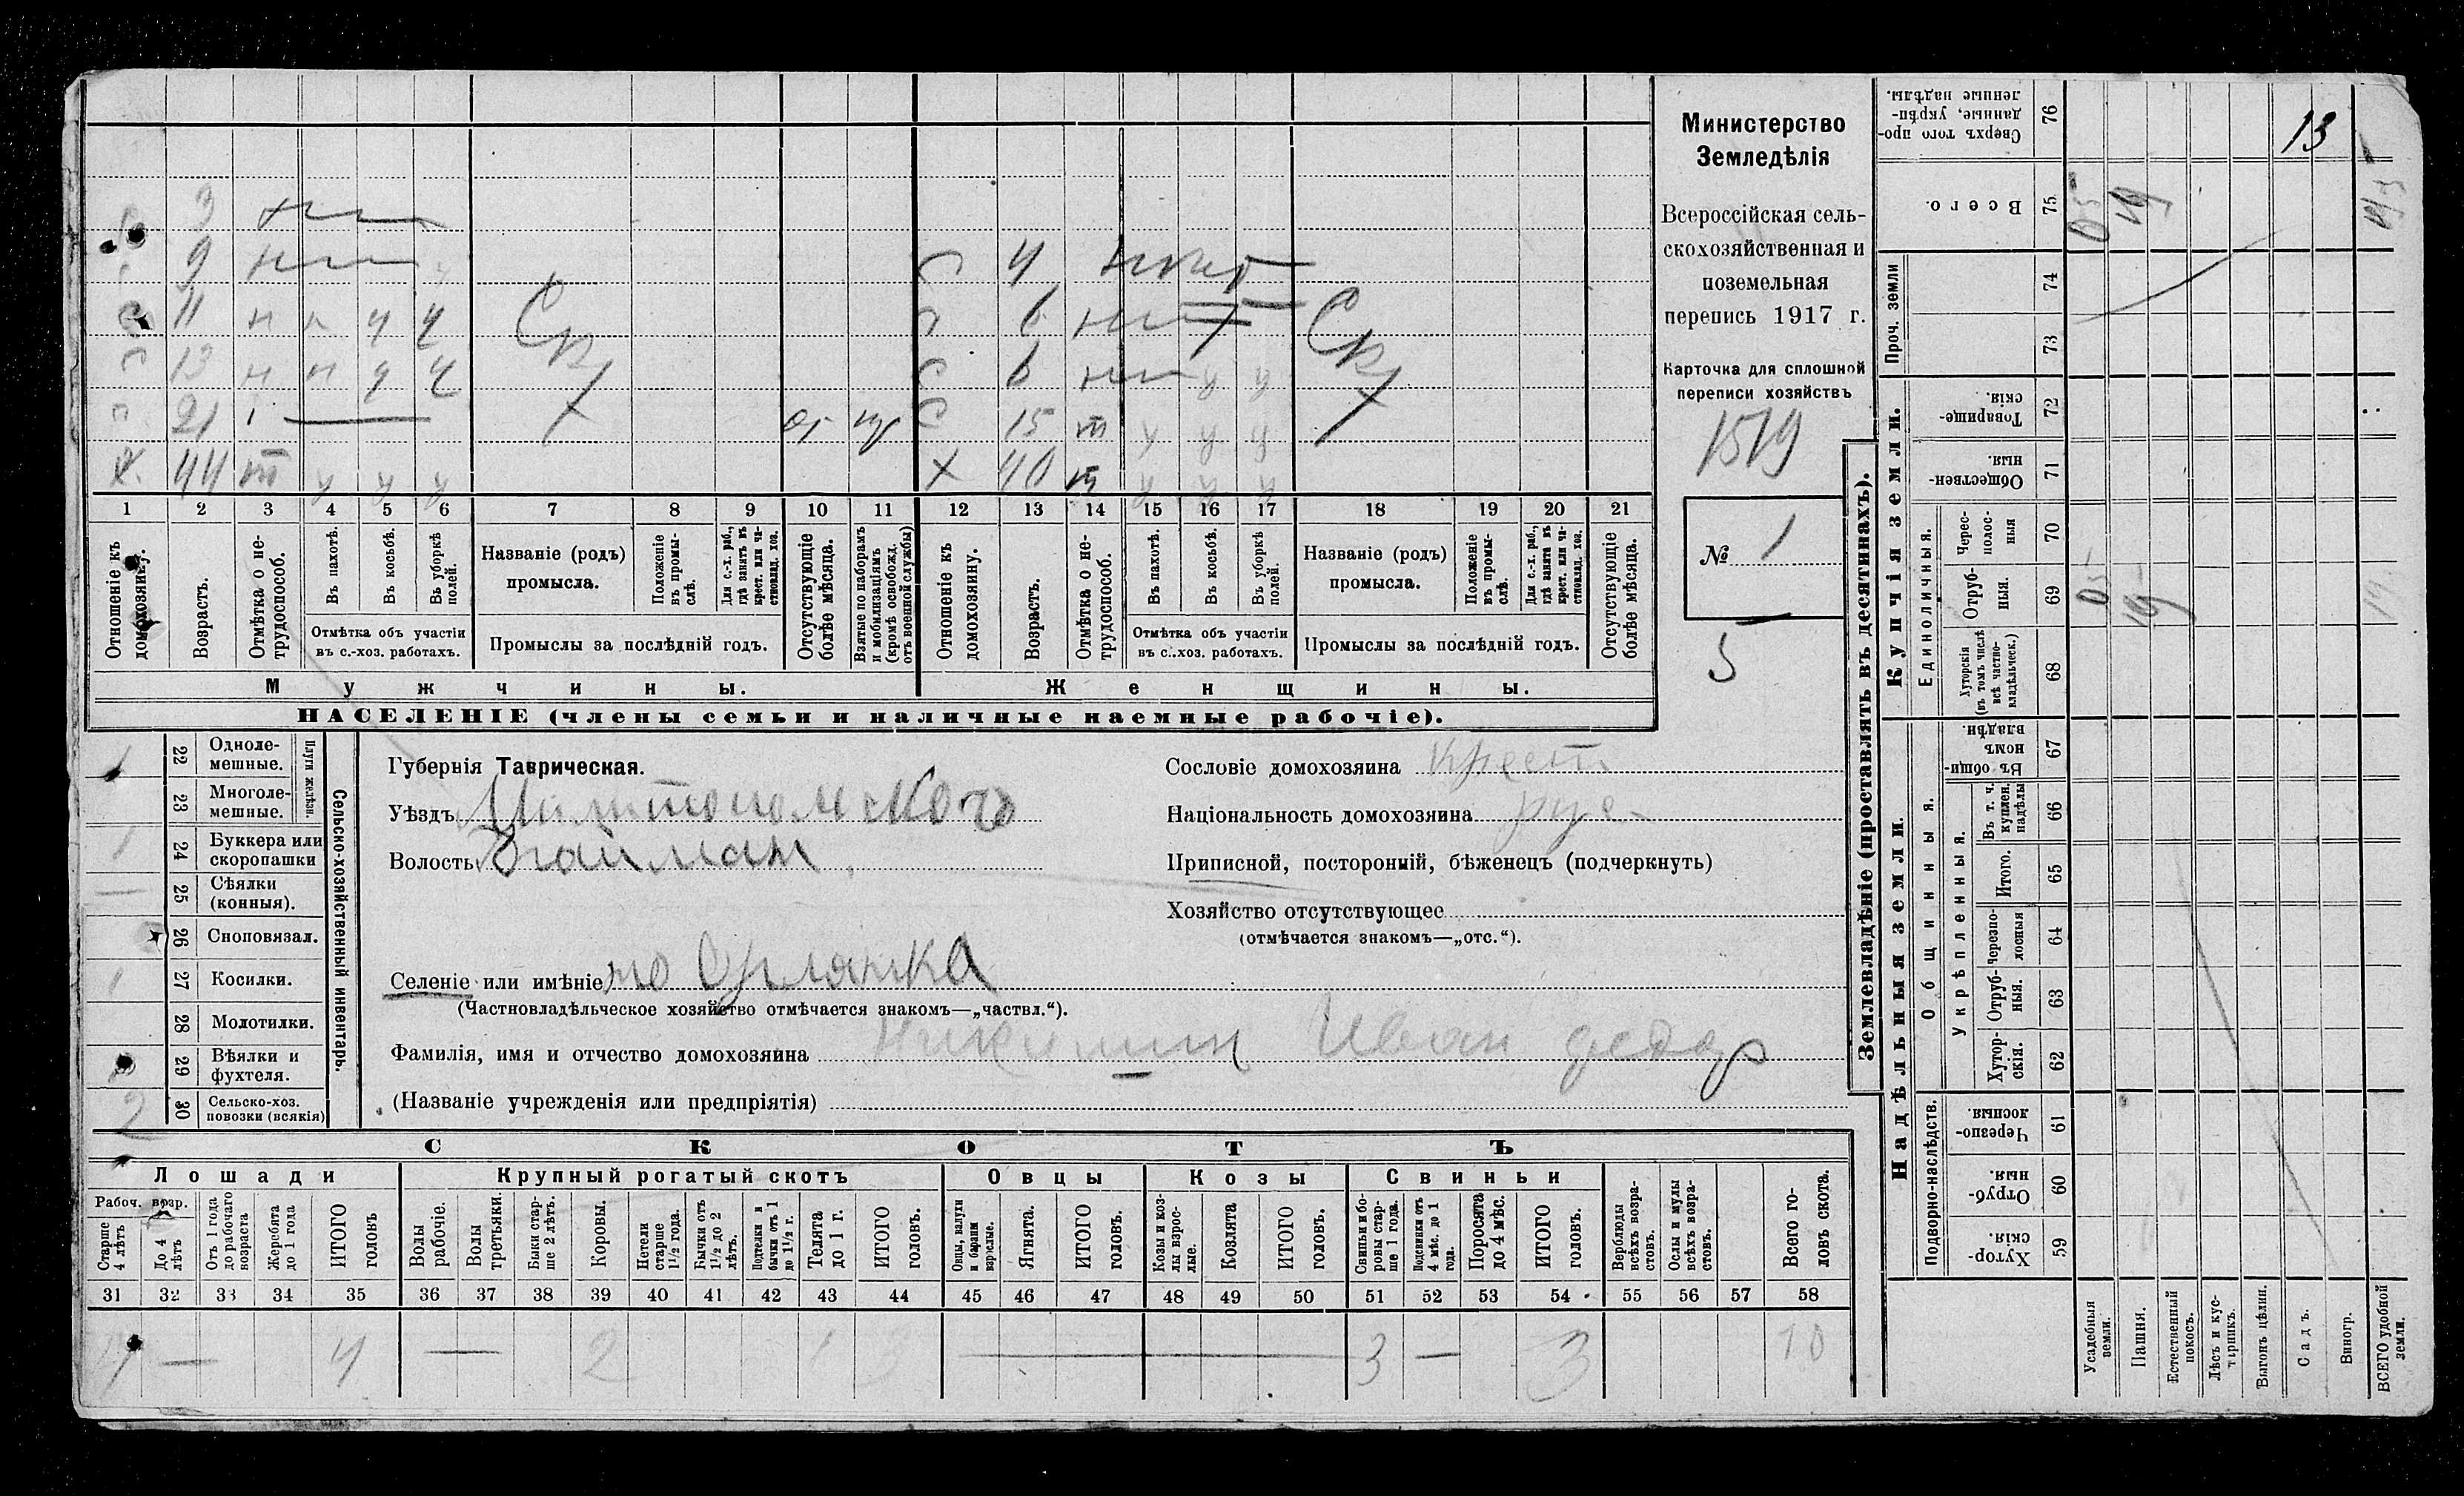 3
9
11 н н ч ч Ск
13 н н ч ч
21
44 т у у у
от
С 4
6
С 6
С 15 т у у у
Х 40 т у у у
Ск
1 2 3 4 5 6 7 8 9 10 11 12 13 14 15 16 17 18 19 20 21
Отношеніе къ домохозяину.
Возрастъ.
Отмѣтка о нетрудоспособ.
Въ пахотѣ.
Въ косьбѣ.
Въ уборкѣ полей.
Отмѣтка объ участіи
въ с.-хоз. работахъ.
Названіе (родъ)
промысла.
Положеніе въ промыслѣ.
Для с.-х. раб., гдѣ занятъ въ крест. или частновлад. хоз.
Промыслы за послѣдній годъ.
Отсутствующіе болѣе мѣсяца.
Взятые по наборамъ и мобилизаціямъ (кромѣ освобожд. отъ военной службы)
Отношеніе къ домохозяину.
Возрастъ.
Отмѣтка о нетрудоспособ.
Въ пахотѣ.
Въ косьбѣ.
Въ уборкѣ полей.
Отмѣтка объ участіи
въ с.-хоз. работахъ.
Названіе (родъ)
промысла.
Положеніе въ промыслѣ.
Для с.-х. раб., гдѣ занята въ крест. или частновлад. хоз.
Промыслы за послѣдній годъ.
Отсутствующіе болѣе мѣсяца.
Мужчины.
Женщины.
НАСЕЛЕНІЕ (члены семьи и наличные наемные рабочіе).
Министерство
Земледѣлія
Всероссійская сель-
скохозяйственная и
поземельная
перепись 1917 г.
Карточка для сплошной
переписи хозяйствъ
1519
№ 1
5
1 22 Одноле-
мешные.
23 Многоле-
мешные.
Плуги желѣзн.
1 24 Буккера или
скоропашки
— 25 Сѣялки
(конныя).
26 Сноповязал.
1 27 Косилки.
28 Молотилки.
29 Вѣялки и
фухтеля.
2 30 Сельско-хоз.
повозки (всякія)
Сельско-хозяйственный инвентарь.
Губернія Таврическая.
Уѣздъ
Волость
Селеніе или имѣніе Орлянка
(Частновладѣльческое хозяйство отмѣчается знакомъ—„частвл.“).
Фамилія, имя и отчество домохозяина Никишин Иван Федор
(Названіе учрежденія или предпріятія)
Сословіе домохозяина крест
Національность домохозяина рус
Приписной, посторонній, бѣженецъ (подчеркнуть)
Хозяйство отсутствующее
(отмѣчается знакомъ—„отс.“).
СКОТЪ
Лошади
Крупный рогатый скотъ
Овцы
Козы
Свиньи
Рабоч. возр.
Старше 4 лѣтъ
До 4 лѣтъ
Отъ 1 года до рабочаго возраста
Жеребята до 1 года
ИТОГО головъ
Волы рабочіе.
Волы третьяки.
Быки старше 2 лѣтъ.
Коровы.
Нетели старше 1½ года.
Бычки отъ 1½ до 2 лѣтъ.
Подтелки и бычки отъ 1 до 1½ г.
Телята до 1 г.
ИТОГО головъ.
Овцы, валухи и бараны взрослые.
Ягнята.
ИТОГО головъ.
Козы и козлы взрослые.
Козлята
ИТОГО головъ.
Свиньи и боровы старше 1 года.
Подсвинки отъ 4 мѣс. до 1 года.
Поросята до 4 мѣс.
ИТОГО головъ.
Верблюды всѣхъ возрастовъ.
Ослы и мулы всѣхъ возрастовъ.
Всего головъ скота.
31 32 33 34 35 36 37 38 39 40 41 42 43 44 45 46 47 48 49 50 51 52 53 54 55 56 57 58
4 — 4 — 2 1 3 — 3 — 3 10
Землевладѣніе (проставлять въ десятинахъ).
Купчія земли.
Надѣльныя земли.
Сверхъ того проданные, укрѣпленные надѣлы. 76
13
Всего. 75 05 19
Проч. земли 74
73
Товарищескія. 72
Общественныя. 71
Единоличныя.
Чересполосныя 70
Отрубныя. 69 05 19
Хуторскія (въ томъ числѣ всѣ частновладѣльческ.) 68
Общинныя.
Въ общинномъ владѣн. 67
Укрѣпленныя.
Въ т. ч. куплен. надѣлы 66
Итого. 65
Черезполосныя 64
Отрубныя. 63
Хуторскія. 62
Подворно-наслѣдств.
Черезполосныя. 61
Отрубныя. 60
Хуторскія. 59
Усадебныя земли.
Пашня.
Естественный покосъ.
Лѣсъ и кустарникъ.
Выгонъ цѣлин.
Садъ.
Виногр.
ВСЕГО удобной земли.